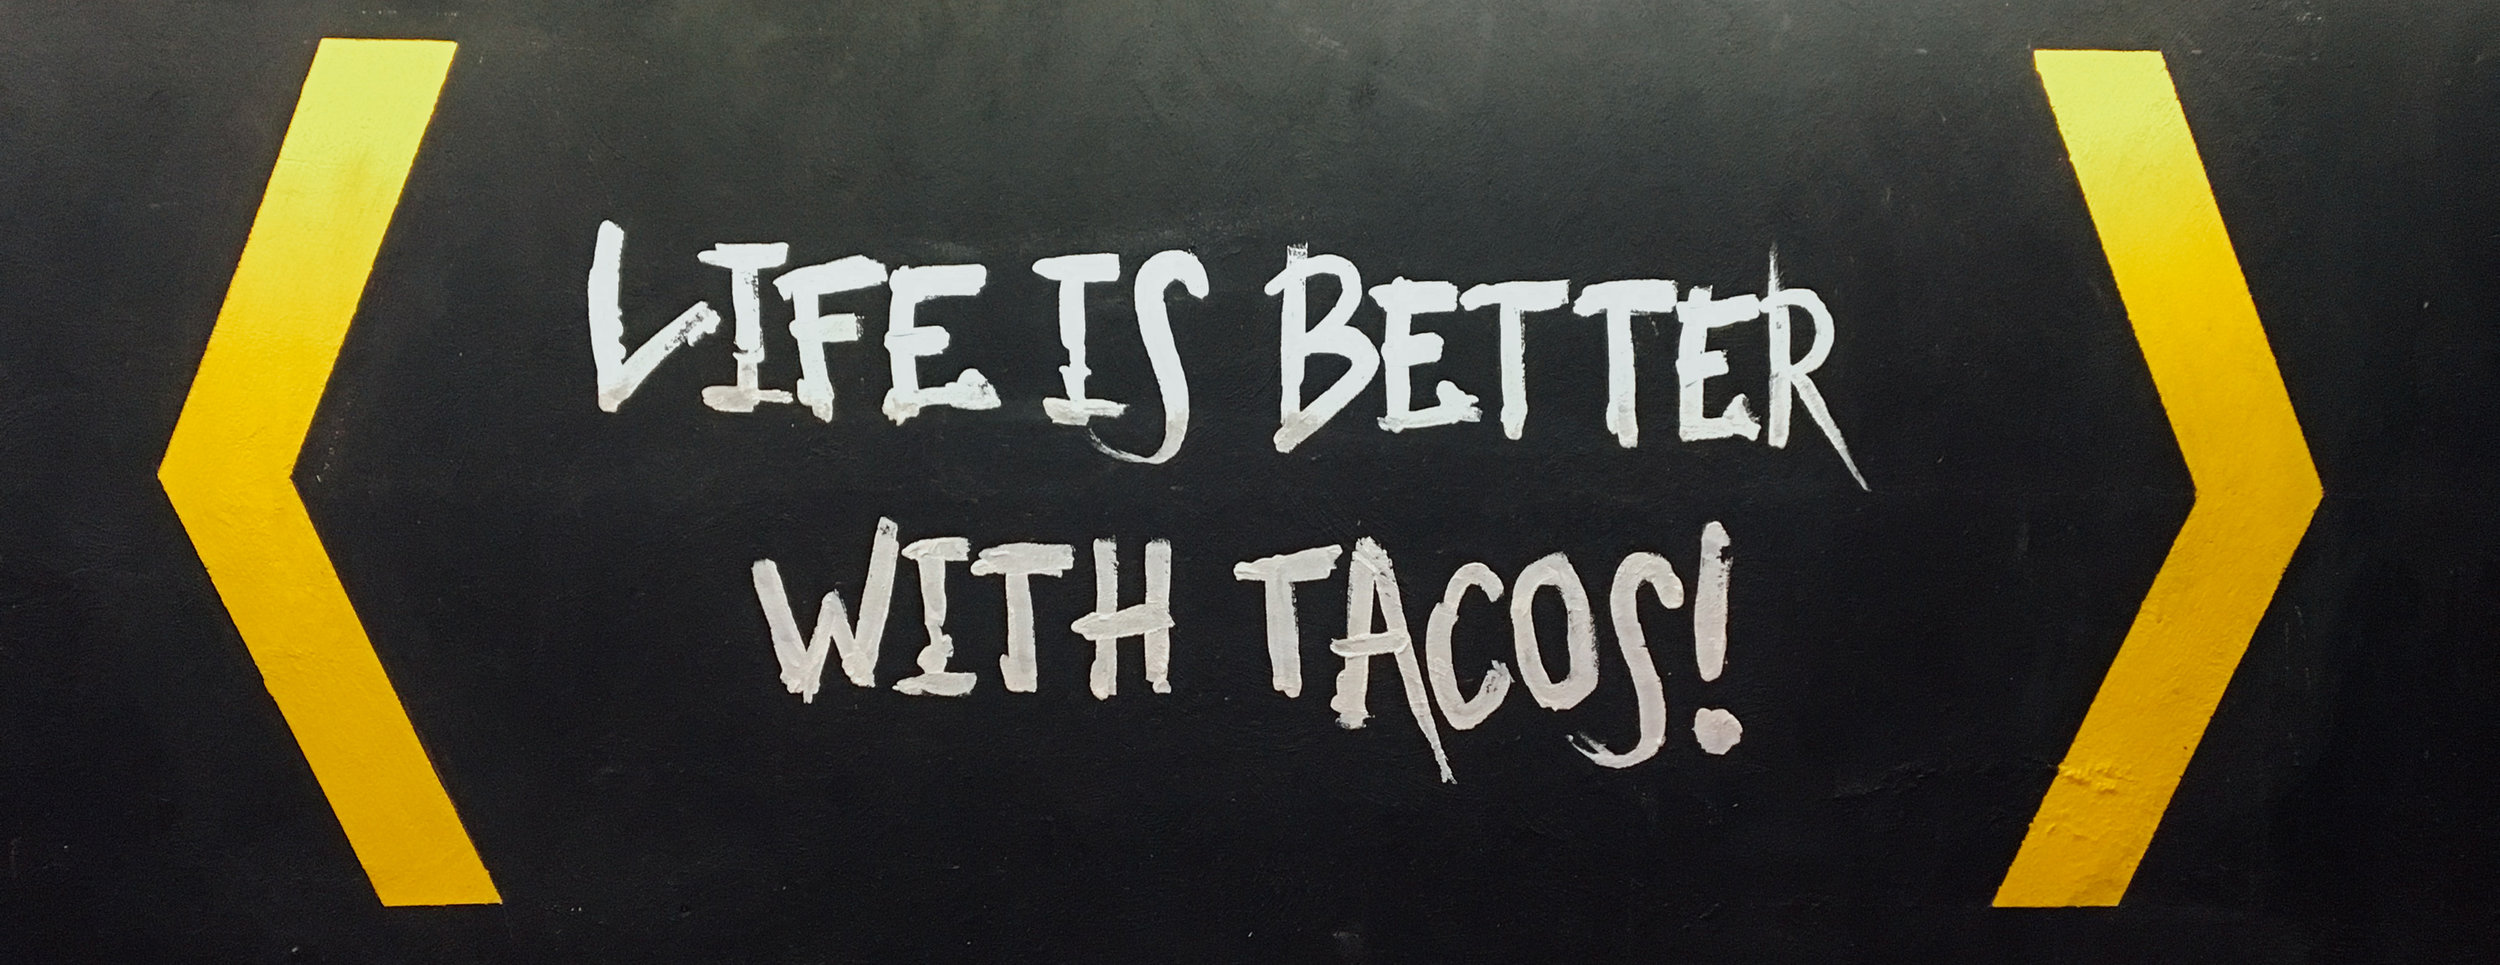 LIFE IS BETTER
WITH TACOS!